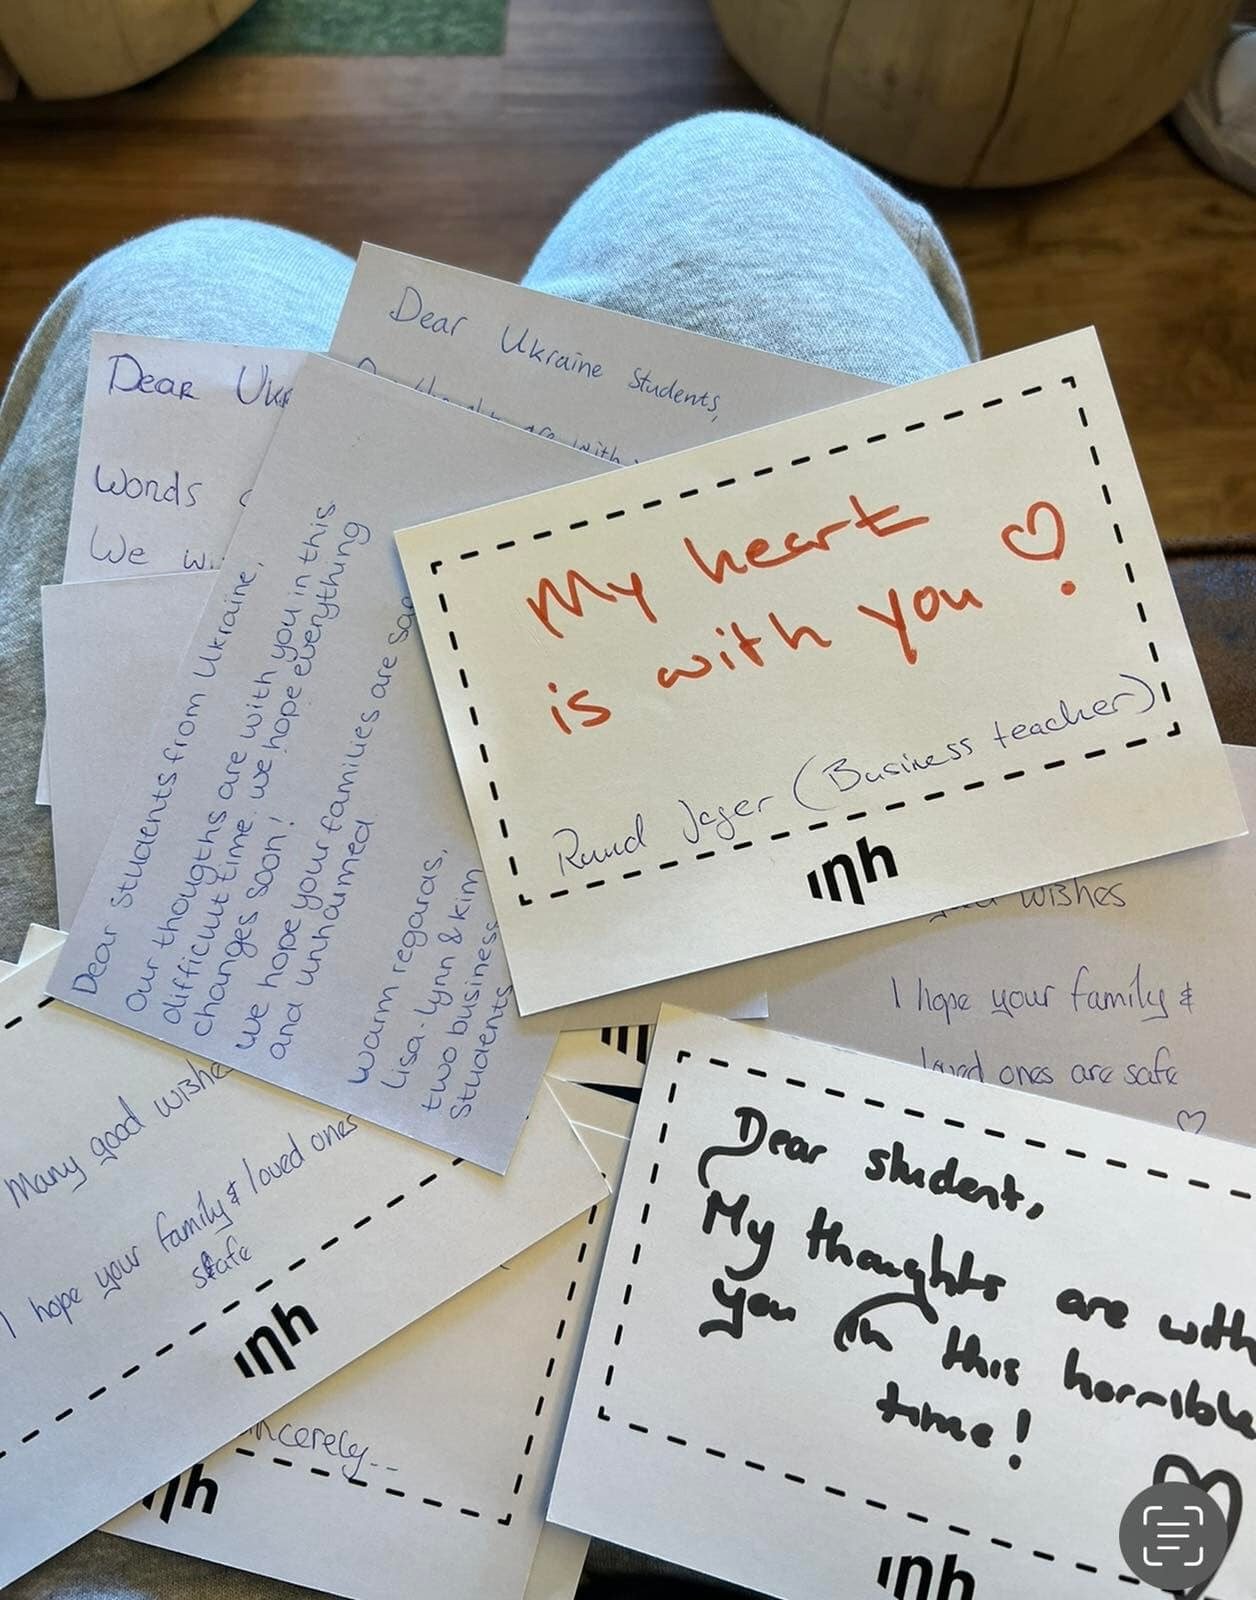 Dear Ukraine Students,
are with
Dear Ukr
Words
We
Dear students from Ukraine,
Our thougths are with you in this
difficult time. we hope everything
changes soon!
we hope your families are safe
and unharmed
warm regards,
Lisa-Lynn & Kim
two business
students
My heart
is with you ♡!
Ruud Jager (Business teacher)
ınh
wishes
I hope your family &
loved ones are safe
♡
Many good wishes
I hope your family & loved ones
safe
ınh
ncerely...
ınh
Dear student,
My thoughts are with
you in this horrible
time!
ınh